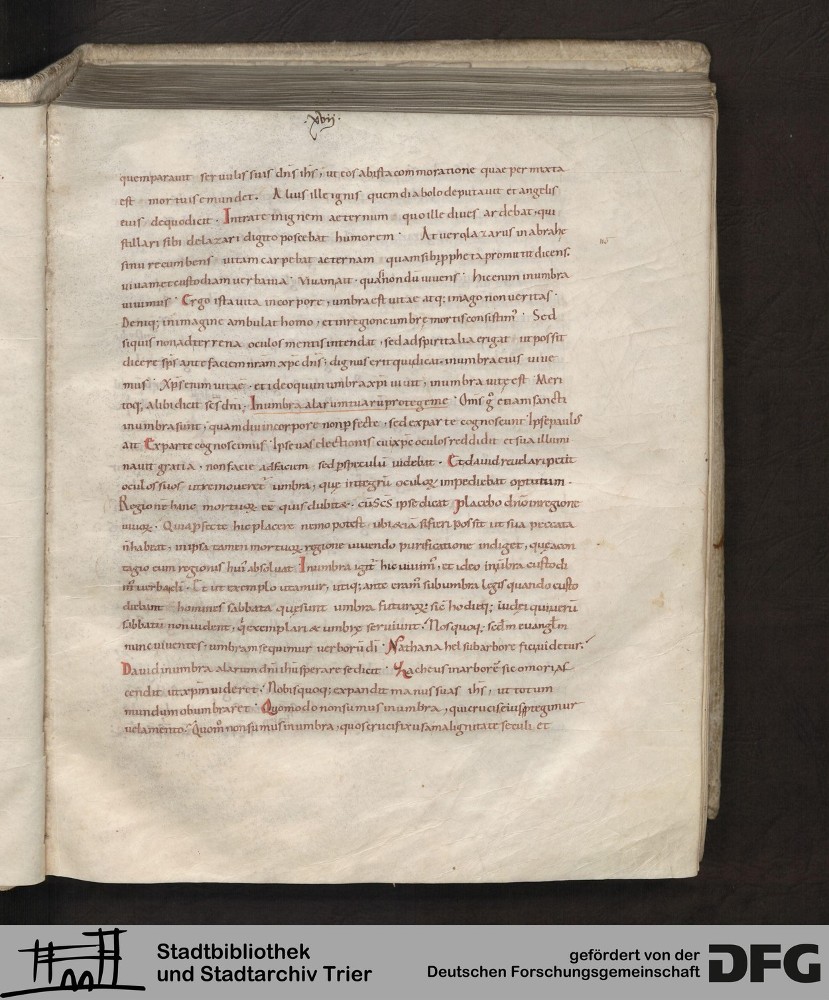 ·xvij·
quem parauit seruulis suis dn̄s ihs; ut eos ab ista commoratione quae permixta
est mortuis emundet. Alius ille ignis quem diabolo deputauit et angelis
eius de quo dicit. Intrate in ignem aeternum quo ille diues ardebat, qui
stillari sibi de lazari digito poscebat humorem. At uero lazarus in abrahę
sinu recumbens uitam carpebat aeternam quam sibi propheta promittit dicens.
uiuam et custodiam uerba tua. Viuam ait quasi nondū uiuens. hic enim in umbra
uiuimus. Ergo ista uita in corpore, umbra est uitae atq; imago non ueritas.
Deniq; in imagine ambulat homo, et in regione umbrę mortis consistim'. Sed
siquis non ad terrena oculos mentis intendat, sed ad spiritalia erigat ut possit
dicere sp̄s ante faciem nr̄am xp̄c dn̄s; dignus erit qui dicat. in umbra eius uiue
mus. Xp̄s enim uita ē. et ideo qui in umbra xp̄i uiuit, in umbra uitę est. Meri
toq; alibi dicit sc̄s dn̄i; In umbra alarum tuarū protege me. Om̄s g° etiam sancti
in umbra sunt, quamdiu in corpore non pfecte, sed ex parte cognoscunt. Ipse paulus
ait Ex parte cognoscimus. Ipse uas electionis cui xp̄c oculos reddidit et sua illumi
nauit gratia. non facie ad faciem sed p speculū uidebat. Et dauid reuelari petiit
oculos suos ut remoueret umbra, quę integrū oculoꝝ impediebat optutum.
Regione hanc mortuoꝝ eē quis dubitet. cū sc̄s ipse dicat Placebo dn̄o in regione
uiuoꝝ. Quia pfecte hic placere nemo potest
n̄ habeat, in ipsa tamen mortuoꝝ regione uiuendo purificatione indiget, quę a con
tagio eum regionis hui' absoluat. In umbra igit' hic uiuim', et ideo in ūbra custodi
m' uerba dī. Et ut exemplo utamur, utiq; ante eram' sub umbra legis quando custo
diebant homines sabbata quę sunt umbra futuroꝝ; sic hodieq; iudei qui uerū
sabbatū non uident, q̊ exemplari et umbrę seruiunt. Nos quoq; sc̄dm euangl̄m
nunc uiuentes. umbram sequimur uerborū dī. Nathanahel sub arbore fici uidetur.
Dauid in umbra alarum dn̄i ihū sperare se dicit. Zacheus in arborē sicomori as
cendit ut xp̄m uideret. Nobis quoq; expandit manus suas ihs, ut totum
mundum obumbraret. Quomodo non sumus in umbra, qui crucis eius protegimur
uelamento. Quom̊ non sumus in umbra, quos crucifixus a malignitate seculi et
Stadtbibliothek
und Stadtarchiv Trier
gefördert von der
Deutschen Forschungsgemeinschaft
DFG